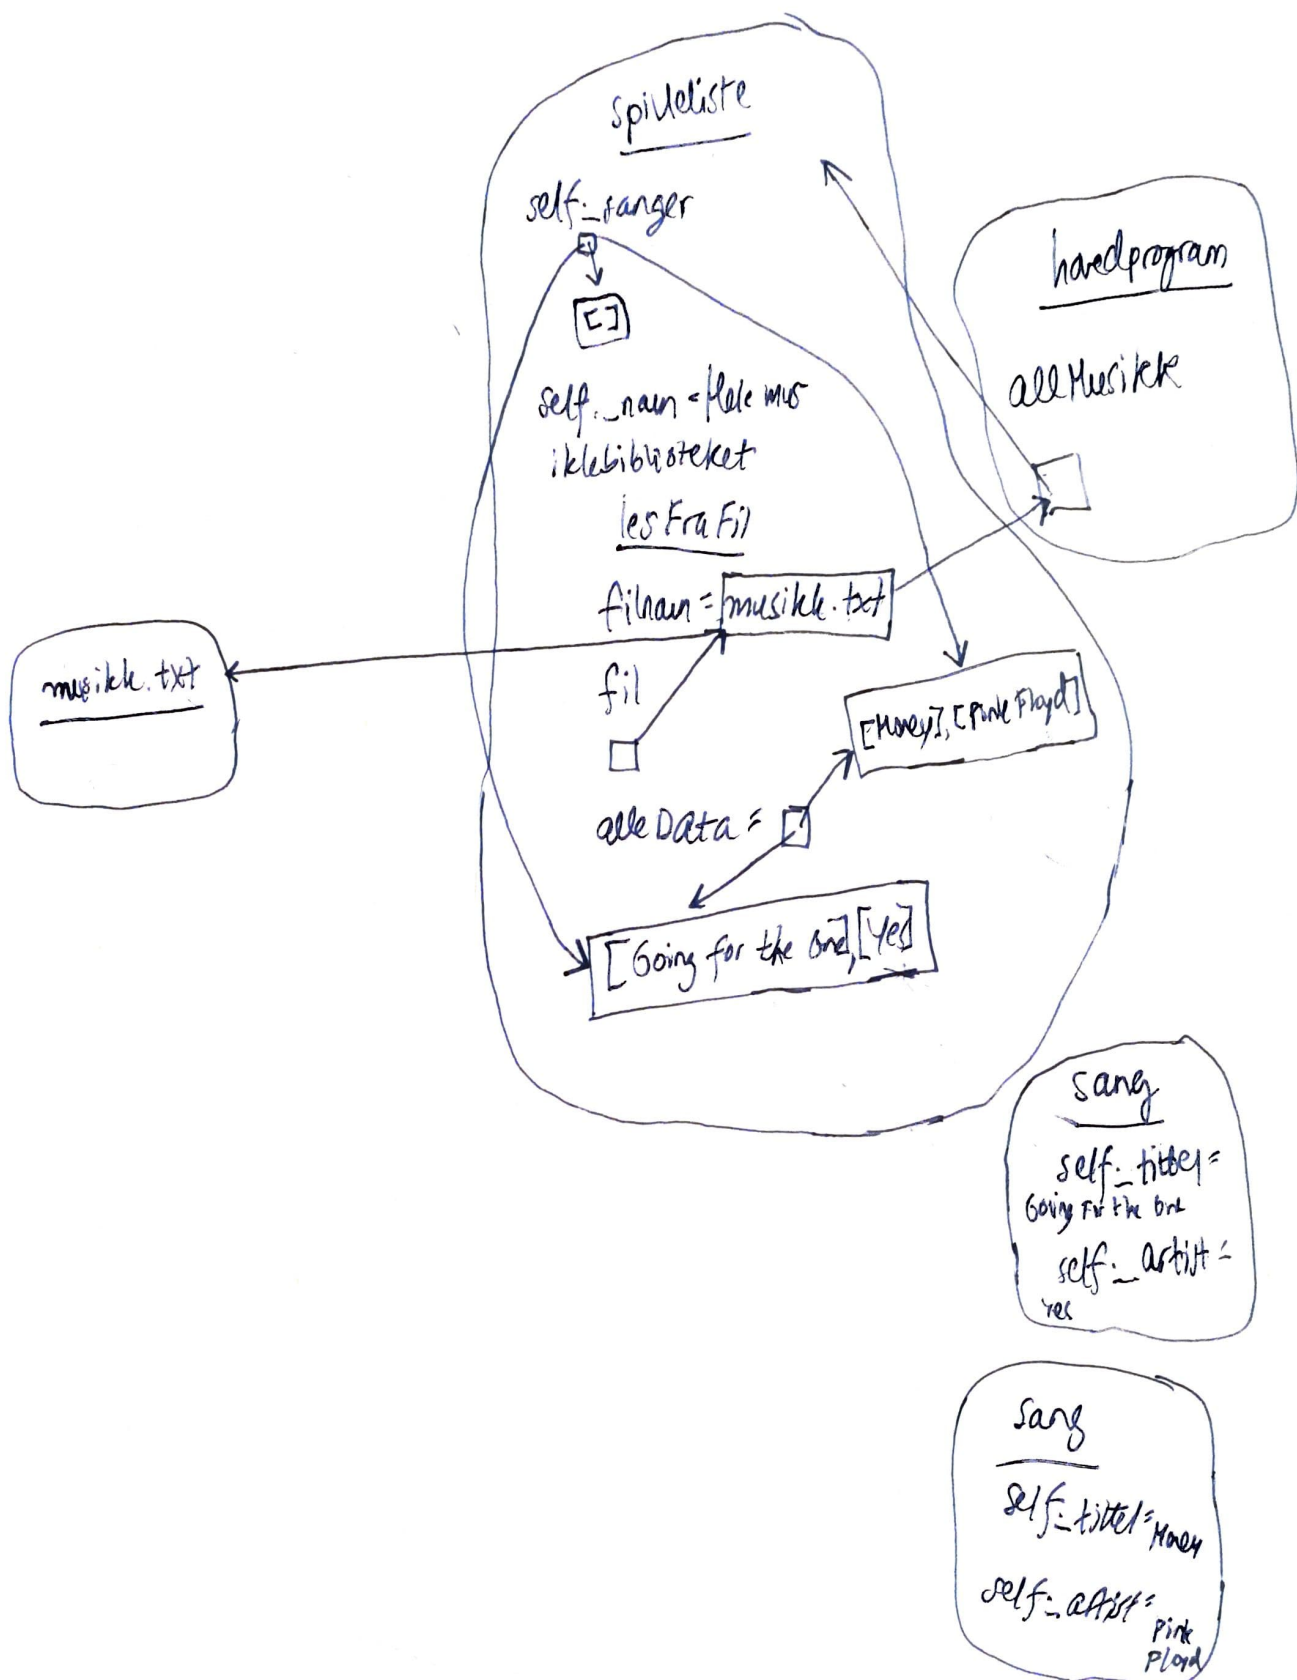 spilleliste
self._sanger
[]
self._navn = Hele mus
ikkbiblioteket
lesFraFil
filnavn = musikk.txt
fil
alleData =
[Money], [Pink Floyd]
[Going for the One], [Yes]
hovedprogram
allMusikk
musikk.txt
sang
self._tittel =
Going For the One
self._artist =
Yes
sang
self._tittel =
Money
self._artist =
Pink
Floyd